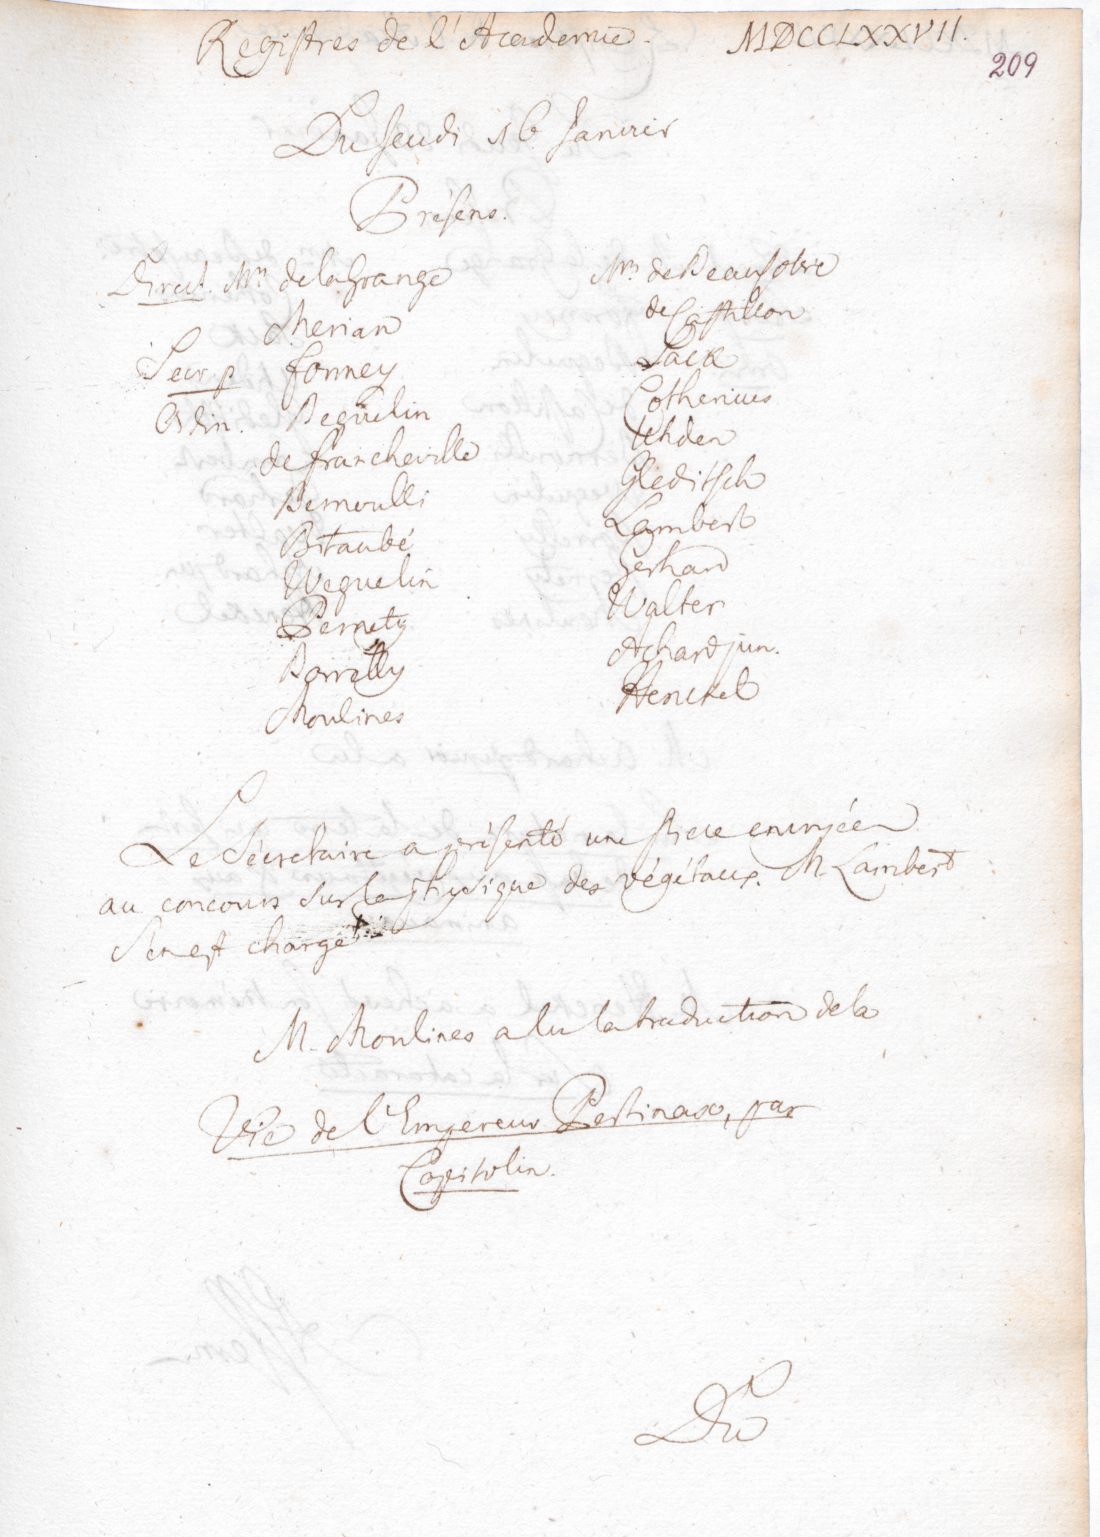 Registres de l'Academie. MDCCLXXVII.
209
Du Jeudi 16 Janvier
Présens.
Direct. Mrs de la Grange
Merian
Secr. p Formey
Ordin. Beguelin
de Francheville
Bernoulli
Bitaubé
Weguelin
Pernety
Borrelly
Moulines
Mrs de Beausobre
de Castillon
Sack
Cothenius
Uhden
Gleditsch
Lambert
Gerhard
Walter
Achard jun.
Henckel
Le Sécretaire a présenté une piece envoyée
au concours sur la physique des végétaux. M. Lambert
s'en est chargé.
M. Moulines a lu la traduction de la
Vie de l'Empereur Pertinax, par
Capitolin.
Du